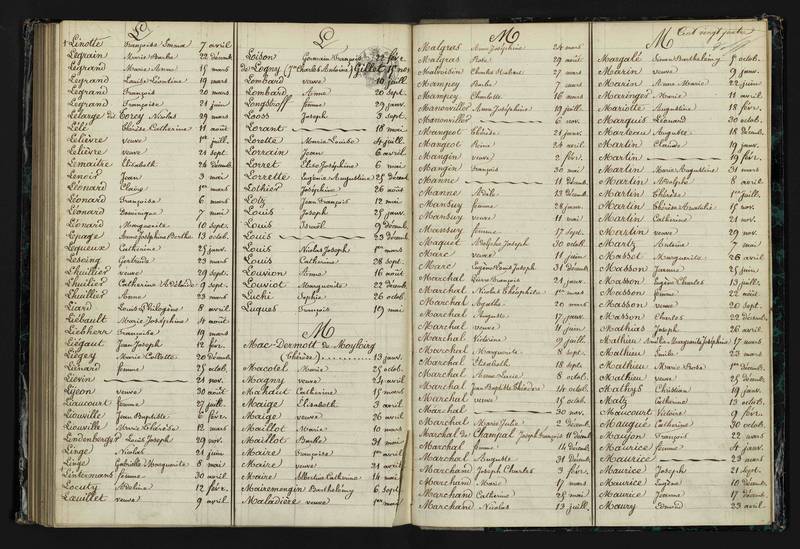 L
Linotte Françoise Emma 7 avril
Legrain Marie Barbe 22 Décemb.
Legrand Marie Anne 15 mars
Legrand Louise Léontine 19 mars
Legrand François 20 mars
Legrand Françoise 21 juin
Lelarge de Torey Nicolas 29 mars
Lélé Thérèse Catherine 11 août
Lelièvre veuve 1er juill.
Lelièvre veuve 21 sept.
Lemaitre Elisabeth 26 décemb.
Lenoir Jean 3 mai
Léonard Claire 1er mars
Léonard Françoise 6 mars
Léonard Dominique 7 mai
Léonard Marguerite 10 sept.
Lepage Anne Josephine Berthe 13 octob.
Lequeux Catherine 25 janv.
Lescing Gertrude 23 mars
Lhuillier veuve 29 sept.
Lhuillier Catherine Adélaïde 9 sept.
Lhuillier Anne 23 mars
Liard Louis Philogène 8 avril
Liébault Marie Joséphine 4 août
Liebherr Françoise 19 mars
Liégaut Jean Joseph 12 fév.
Liégey Marie Collette 20 Décemb.
Liénard femme 25 octob.
Liévin 21 nov.
Lijeon veuve 30 août
Liaucourt femme 27 juill.
Liouville Jean Baptiste 6 févr.
Liouville Marie Thérèse 12 mars
Lindenberger Louis Joseph 29 nov.
Linge Nicolas 21 juin
Linge Gabrielle Marguerite 8 mai
Lintermans femme 30 avril
Locuty Adeline 12 févr.
Lauillet veuve 9 avril
L
Loison Germain François 22 févr.
de Loigny (Jn Charles Antoine) Gillot 15 nov.
Lombard veuve 10 juill.
Lombard Anne 20 sept.
Longshoff femme 29 janv.
Looss Joseph 3 sept.
Lorant 16 mai
Lorette Marie Louise 4 juill.
Lorrain Jean 2 avril
Lorret Elise Joséphine 6 mai
Lorrette Eugénie Augustine 25 décemb.
Lothier Joséphine 26 août
Lotz Jean François 12 mai
Louis Joseph 25 janv.
Louis Ismaël 9 décemb.
Louis 23 décemb.
Louis Nicolas Joseph 1er mars
Louis Catherine 28 sept.
Louvion Anne 16 août
Louviot Marguerite 22 décemb.
Luchi Sophie 26 octob.
Lugues François 19 mai
M
Mac-Dermott de Moyloirg
(Thérèse) 13 janv.
Macotel Marie 25 octob.
Magny veuve 24 avril
Mahaut Catherine 15 mars
Maige Elisabeth 3 avril
Maige veuve 26 avril
Maillot Marie 10 mars
Maillot Barbe 31 mai
Maire Françoise 1er avril
Maire veuve 21 avril
Maire Albertine Catherine 14 mai
Mairemengin Barthélémy 6 sept.
Maladière veuve 1er mai
M
Malgras Anne Joséphine 24 mars
Malgras Rose 29 août
Malvoisin Charles Hubert 27 mars
Mampey Barbe 7 mars
Mampey Charles 16 mars
Manonviller Anne Joséphine 19 juill.
Manonviller 6 nov.
Mangeot Thérèse 21 janv.
Mangeot Reine 24 avril
Mangin veuve 2 févr.
Mangin François 30 mai
Manne 11 Décemb.
Manne Adèle 13 Décemb.
Mansuy femme 28 janv.
Mansuy veuve 11 mai
Mansuy femme 17 sept.
Maquet Adolphe Joseph 30 octob.
Marc veuve 11 juin
Marc Eugène Louis Joseph 31 Décemb.
Marchal Luce François 21 janv.
Marchal Nicolas Théophile 1er mars
Marchal Agathe 20 mars
Marchal Auguste 17 janv.
Marchal veuve 11 juin
Marchal Victoire 9 juill.
Marchal Marguerite 8 sept.
Marchal Elisabeth 18 sept.
Marchal Anne Lucie 8 octob.
Marchal Jean Baptiste Théodore 14 octob.
Marchal veuve 15 octob.
Marchal 30 nov.
Marchal Marie Julie 2 Décemb.
Marchal de Champal Joseph François 11 Décemb.
Marchal femme 14 Décemb.
Marchal Auguste 31 Décemb.
Marchand Joseph Charles 3 févr.
Marchand Marie 17 mars
Marchand Catherine 25 mai
Marchand Nicolas 13 juill.
Cent vingt quatre
M
Margalé Simon Barthélémy 5 octob.
Marin veuve 9 janv.
Marin Anne Marie 22 juin
Maringer Marie 11 avril
Mariotte Augustine 18 févr.
Marquis Léonard 30 octob.
Marteau Auguste 18 décemb.
Martin Claude 19 janv.
Martin 19 févr.
Martin Marie Augustine 31 mars
Martin Adolphe 8 avril
Martin Thérèse 1er juill.
Martin Thérèse Anatalie 15 nov.
Martin Catherine 21 nov.
Martin veuve 29 nov.
Martz Antoine 7 mai
Massot Marguerite 26 avril
Masson Jeanne 25 juin
Masson Eugène Charles 13 juill.
Masson femme 22 août
Masson veuve 20 sept.
Masson Charles 22 Décemb.
Mathias Joseph 26 avril
Mathieu Amélie Marguerite Joséphine 17 mars
Mathieu Emile 23 mars
Mathieu Marie Rose 1er décemb.
Mathieu veuve 25 décemb.
Mathys Christian 19 janv.
Matz Catherine 13 octob.
Maucourt Victoire 9 févr.
Maugue Catherine 30 octob.
Maujon François 22 mars
Maurice femme 4 janv.
Maurice 23 mars
Maurice Joseph 21 sept.
Maurice Eugène 10 décemb.
Maurice Jeanne 17 décemb.
Maury Edmond 23 avril